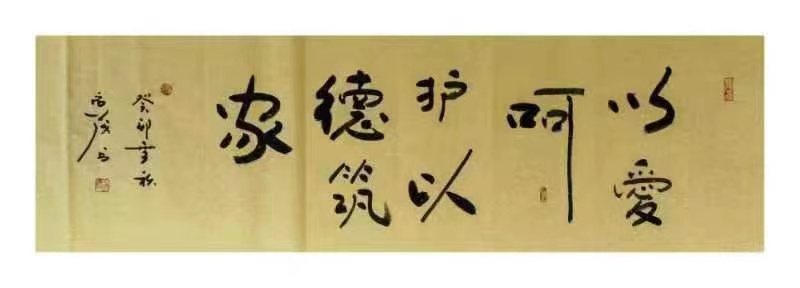 以愛
呵
护以
德筑
家
癸卯秋